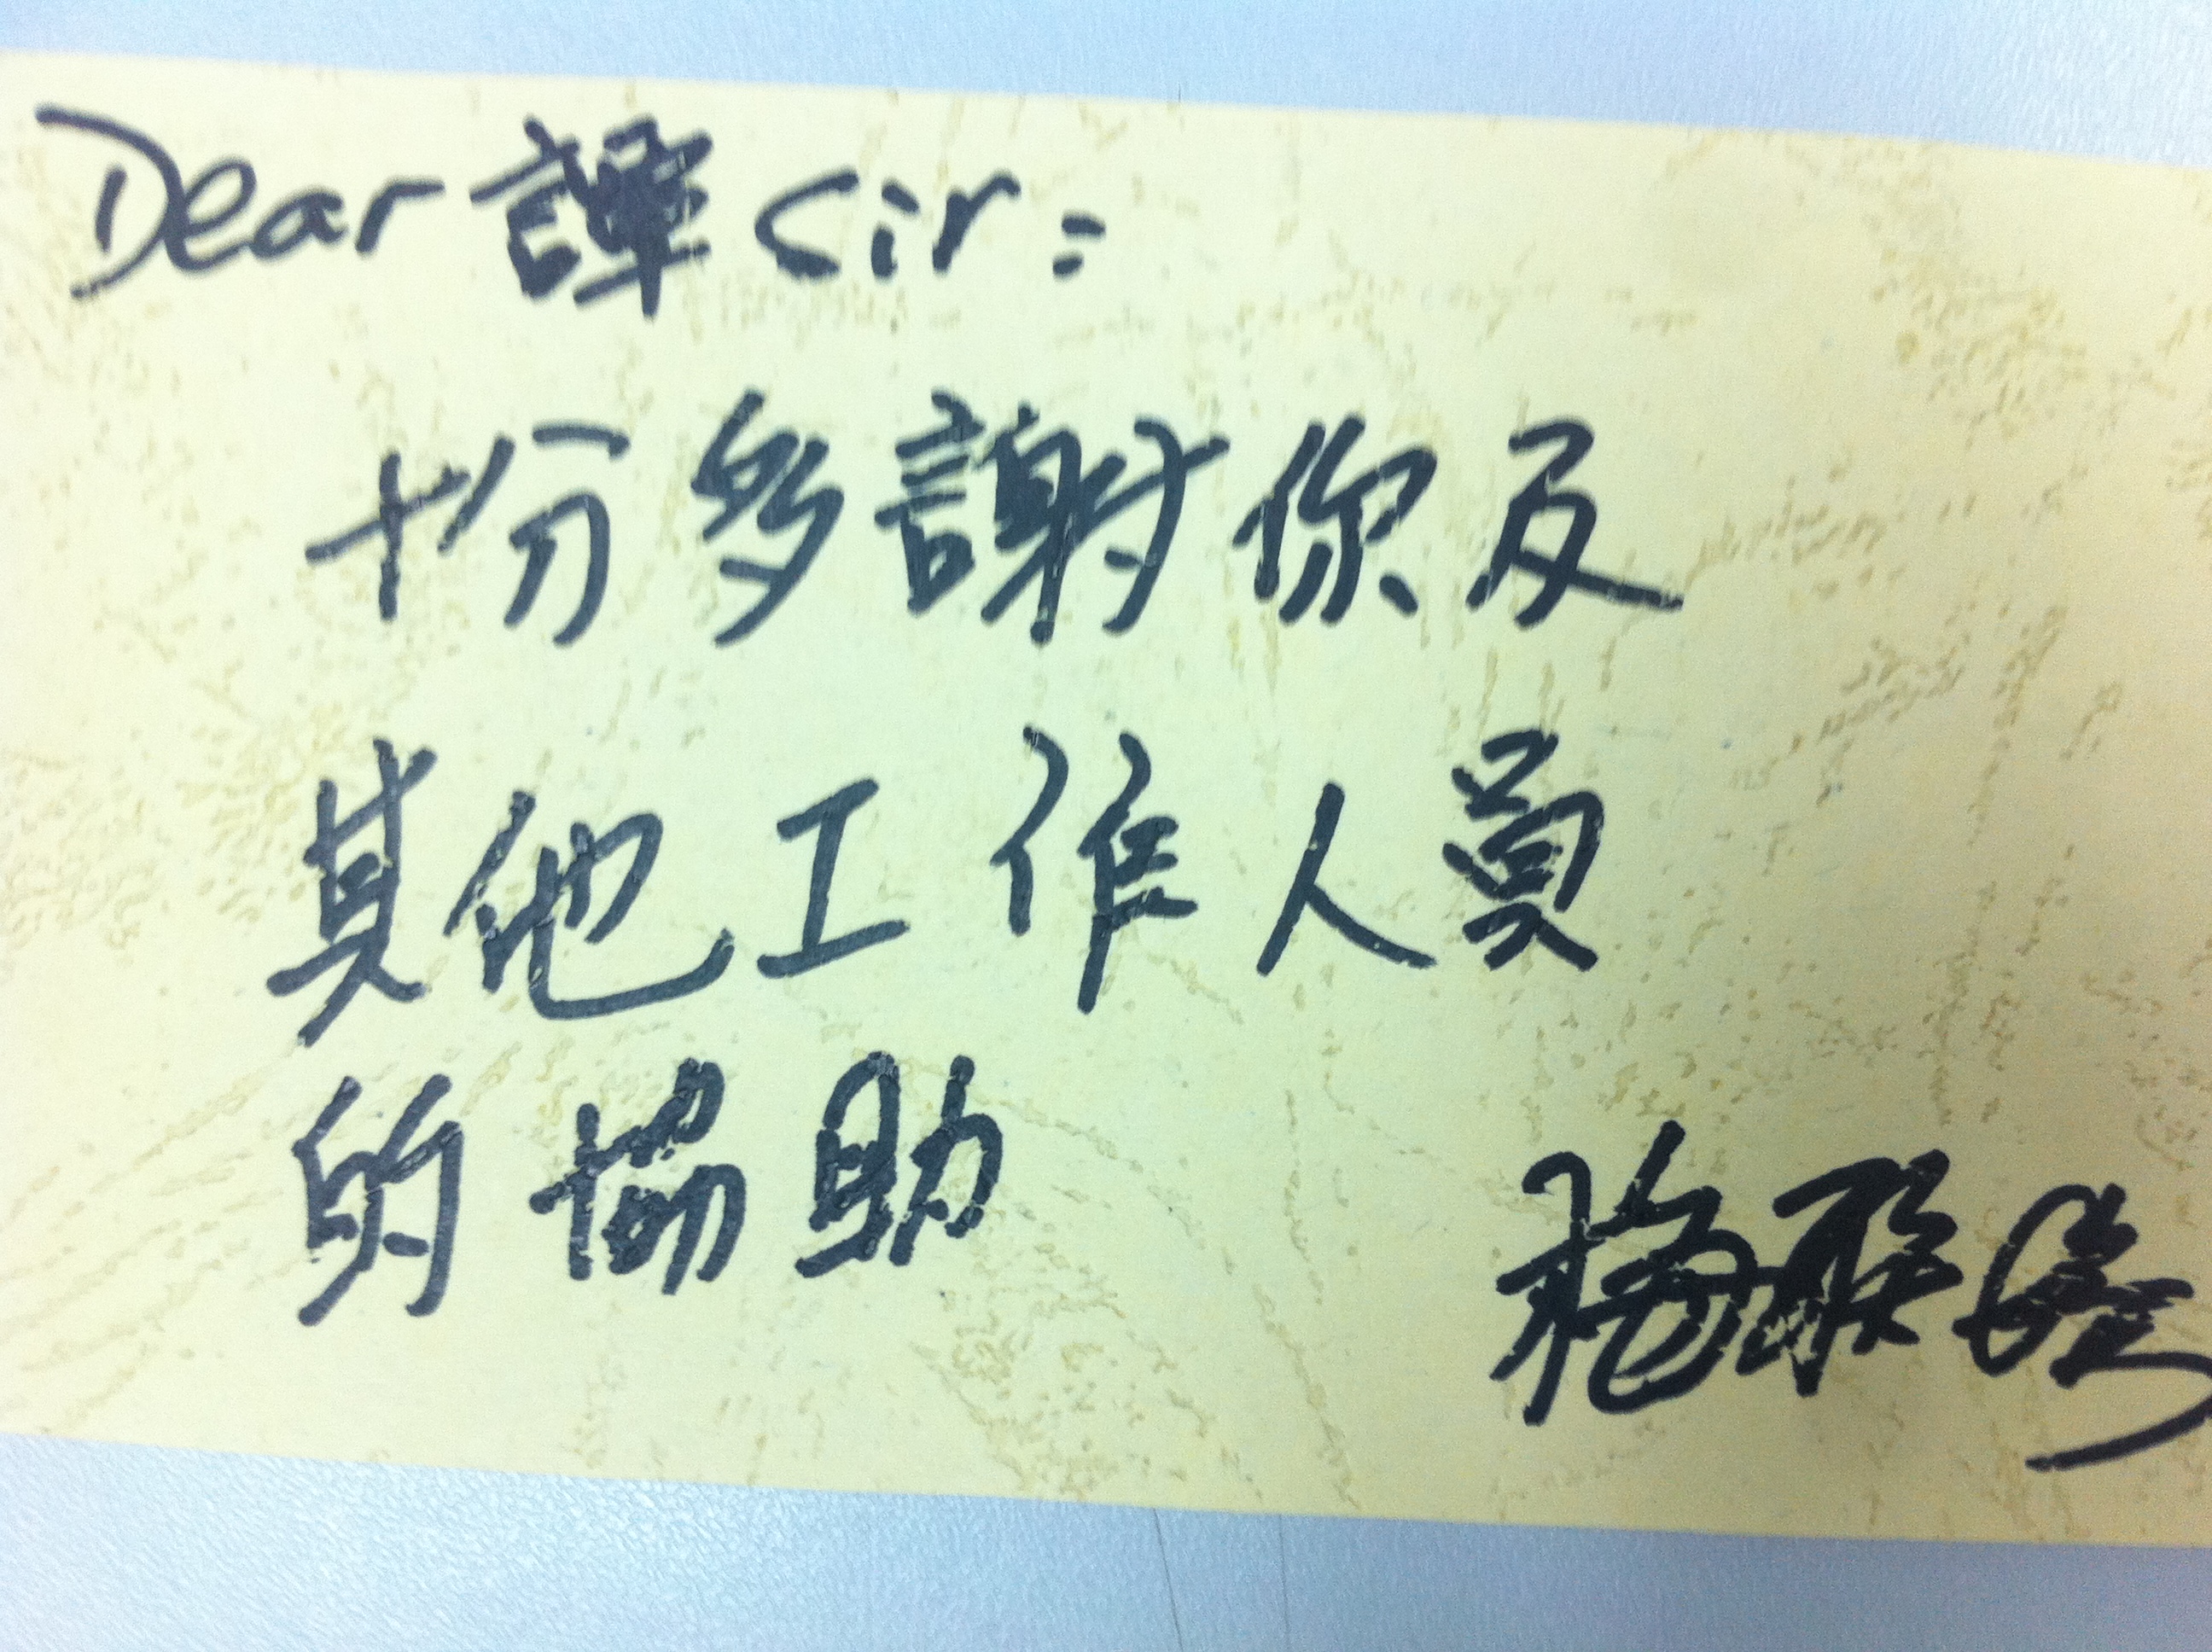 Dear 譚 Sir:
十份多謝你及
其他工作人員
的協助